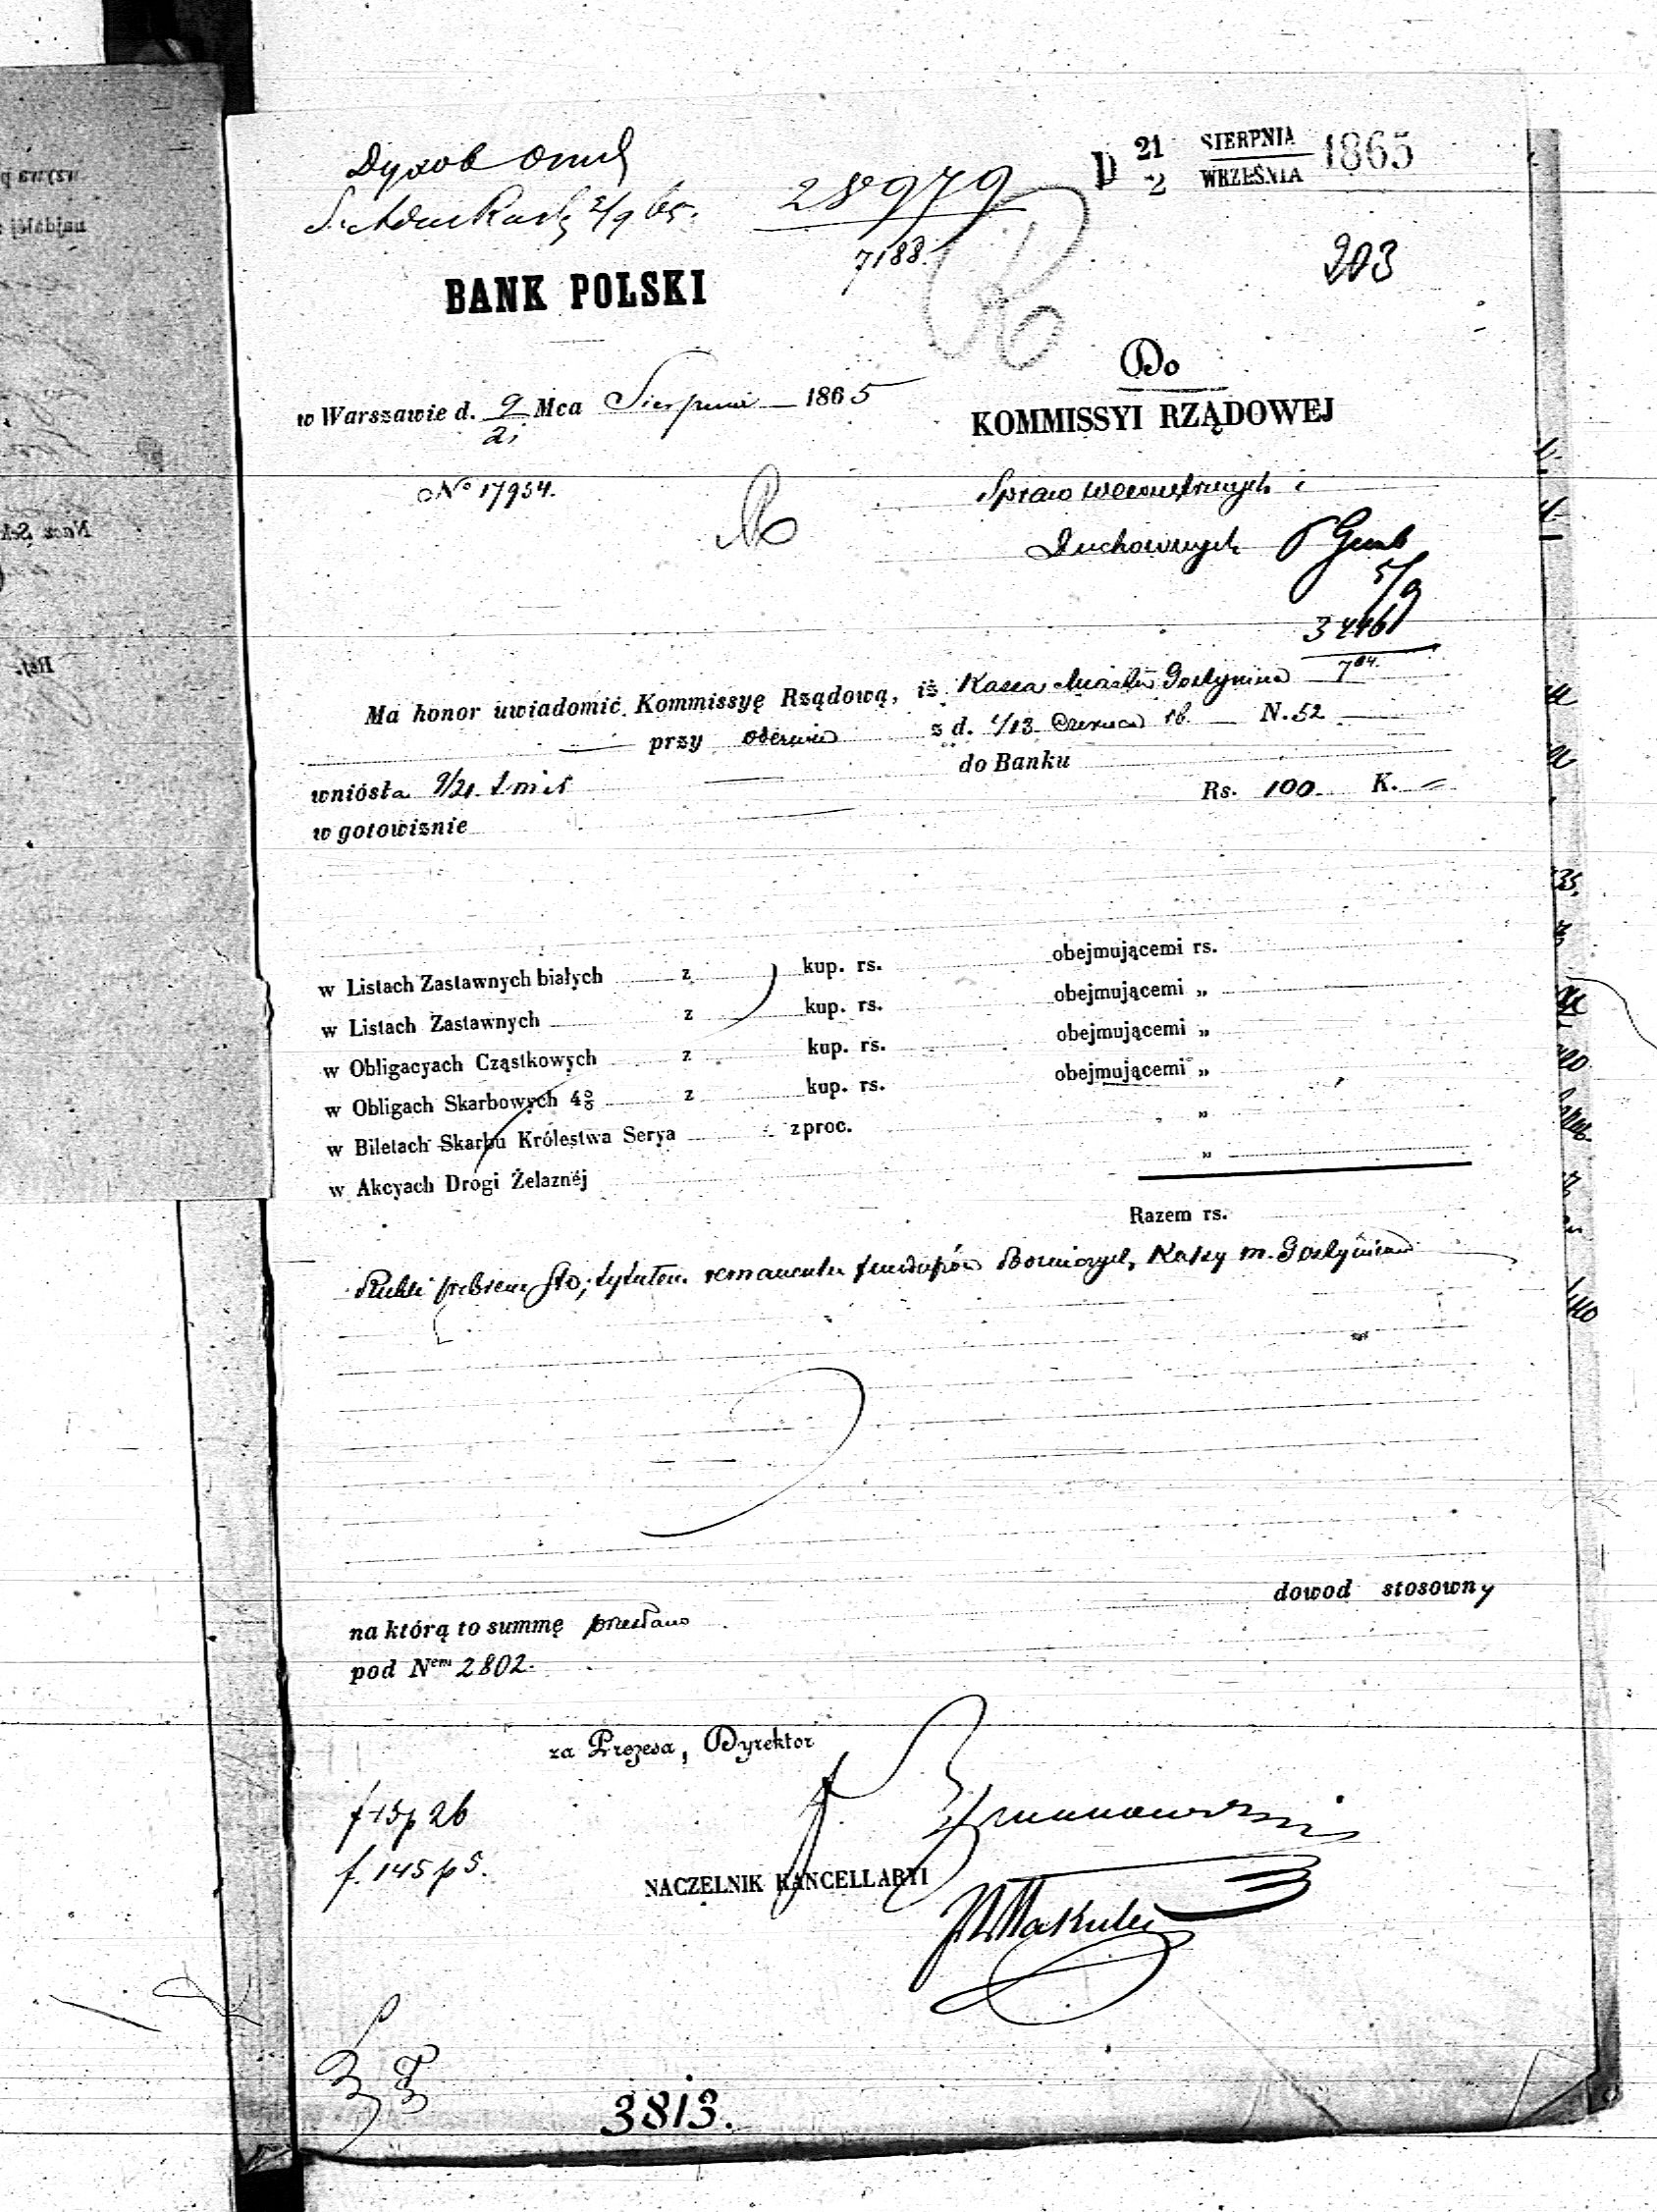 D 21 SIERPNIA 1865
2 WRZEŚNIA
28979
7188.
203
BANK POLSKI
Do
w Warszawie d. 9 Mca Sierpnia 1865
21
KOMMISSYI RZĄDOWEJ
No 17954.
Spraw Wewnętrznych i
Duchownych
5/9
Ma honor uwiadomić Kommissyę Rządową, iż Kassa Miasta Gostynina
przy z d. 1/13 Czerwca rb. N. 52
wniósła 9/21 t. m i r. do Banku
w gotowiznie Rs. 100 K. =
w Listach Zastawnych białych z kup. rs. obejmującemi rs.
w Listach Zastawnych z kup. rs. obejmującemi „
w Obligacyach Cząstkowych z kup. rs. obejmującemi „
w Obligach Skarbowych 4% z kup. rs. obejmującemi „
w Biletach Skarbu Królestwa Serya z proc. „
w Akcyach Drogi Żelaznéj „
Razem rs.
Rubli srebrem Sto, tytułem remanentu funduszów Kassy m. Gostynina
na którą to summę przesłano dowod stosowny
pod Nem 2802.
za Prezesa, Dyrektor
f 15 p 26
f. 145 p 5.
NACZELNIK KANCELLARYI
3813.